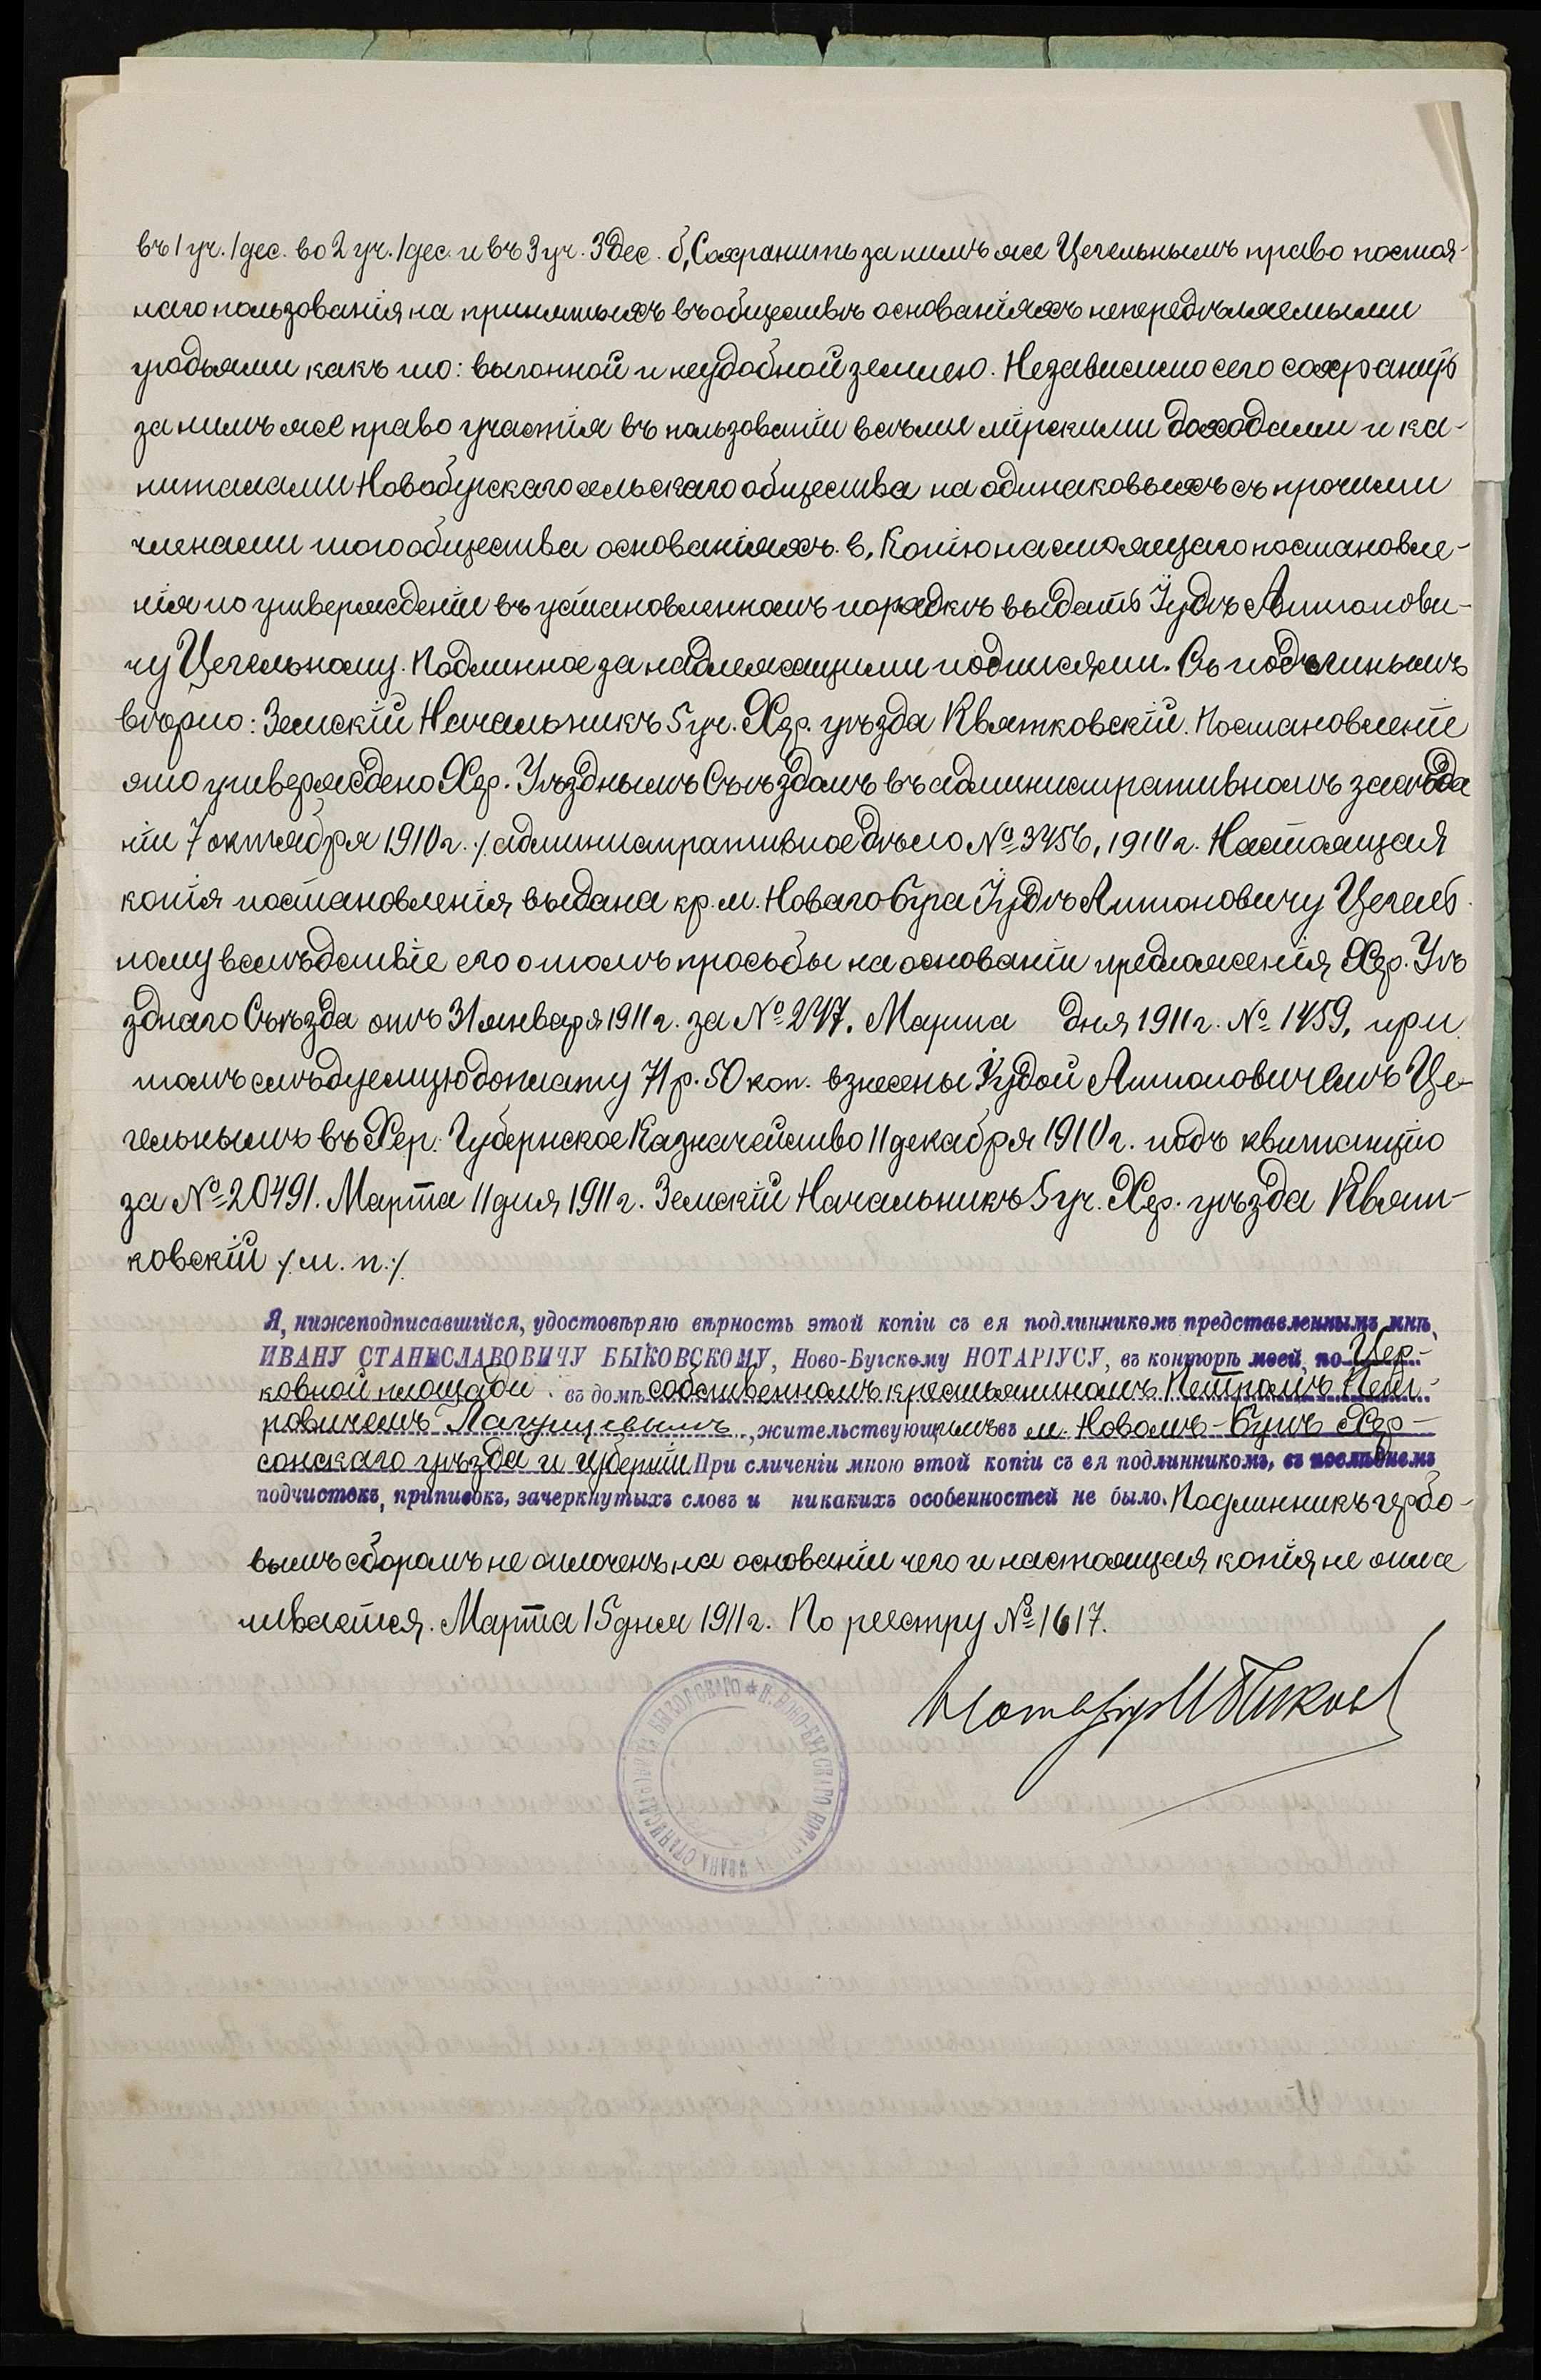 въ 1 уч. 1 дес. во 2 уч. 1 дес. и въ 3 уч. 3 дес. б, Сохранить за нимъ же Цегельнымъ право постоя-
наго пользованія на принятыхъ въ обществѣ основаніяхъ непередѣляемыми
угодьями какъ то: выгонной и неудобной землею. Независимо сего сохранить
за нимъ же право участія въ пользованіи всѣми мірскими доходами и ка-
питалами Новобугскаго сельскаго общества на одинаковыхъ съ прочими
членами того общества основаніяхъ. в, Копію настоящаго постановле-
нія по утвержденіи въ установленномъ порядкѣ выдать Іудѣ Антонови-
чу Цегельному. Подлинное за надлежащими подписями. Съ подлиннымъ
вѣрно: Земскій Начальникъ 5 уч. Хер. уѣзда Квятковскій. Постановленіе
это утверждено Хер. Уѣзднымъ Съѣздомъ въ административномъ засѣда
ніи 7 октября 1910 г. /. административное дѣло № 3456, 1910 г. Настоящая
копія постановленія выдана кр. м. Новаго Буга Іудѣ Антоновичу Цегель
ному вслѣдствіе его о томъ просьбы на основаніи предложенія Хер. Уѣ
зднаго Съѣзда отъ 31 января 1911 г. за № 247. Марта дня 1911 г. № 1459, при
томъ слѣдуемую доплату 71 р. 50 коп. взнесены Іудой Антоновичемъ Це-
гельнымъ въ Хер. Губернское Казначейство 11 декабря 1910 г. подъ квитанцію
за № 20491. Марта 11 дня 1911 г. Земскій Начальникъ 5 уч. Хер. уѣзда Квят-
ковскій /. м. п. /.
Я, нижеподписавшійся, удостовѣряю вѣрность этой копіи съ ея подлинникомъ представленнымъ мнѣ,
ИВАНУ СТАНИСЛАВОВИЧУ БЫКОВСКОМУ, Ново-Бугскому НОТАРІУСУ, въ конторѣ моей, по Цер-
ковной площади въ домѣ собственномъ крестьяниномъ Петромъ Пет-
ровичемъ , жительствующимъ въ м. Новомъ-Бугѣ Хер-
сонскаго уѣзда и губерніи При сличеніи мною этой копіи съ ея подлинникомъ, въ послѣднемъ
подчистокъ, приписокъ, зачеркнутыхъ словъ и никакихъ особенностей не было. Подлинникъ гербо-
вымъ сборомъ не оплоченъ на основаніи чего и настоящая копія не опла
чивается. Марта 15 дня 1911 г. По реестру № 1617.
Нотаріусъ